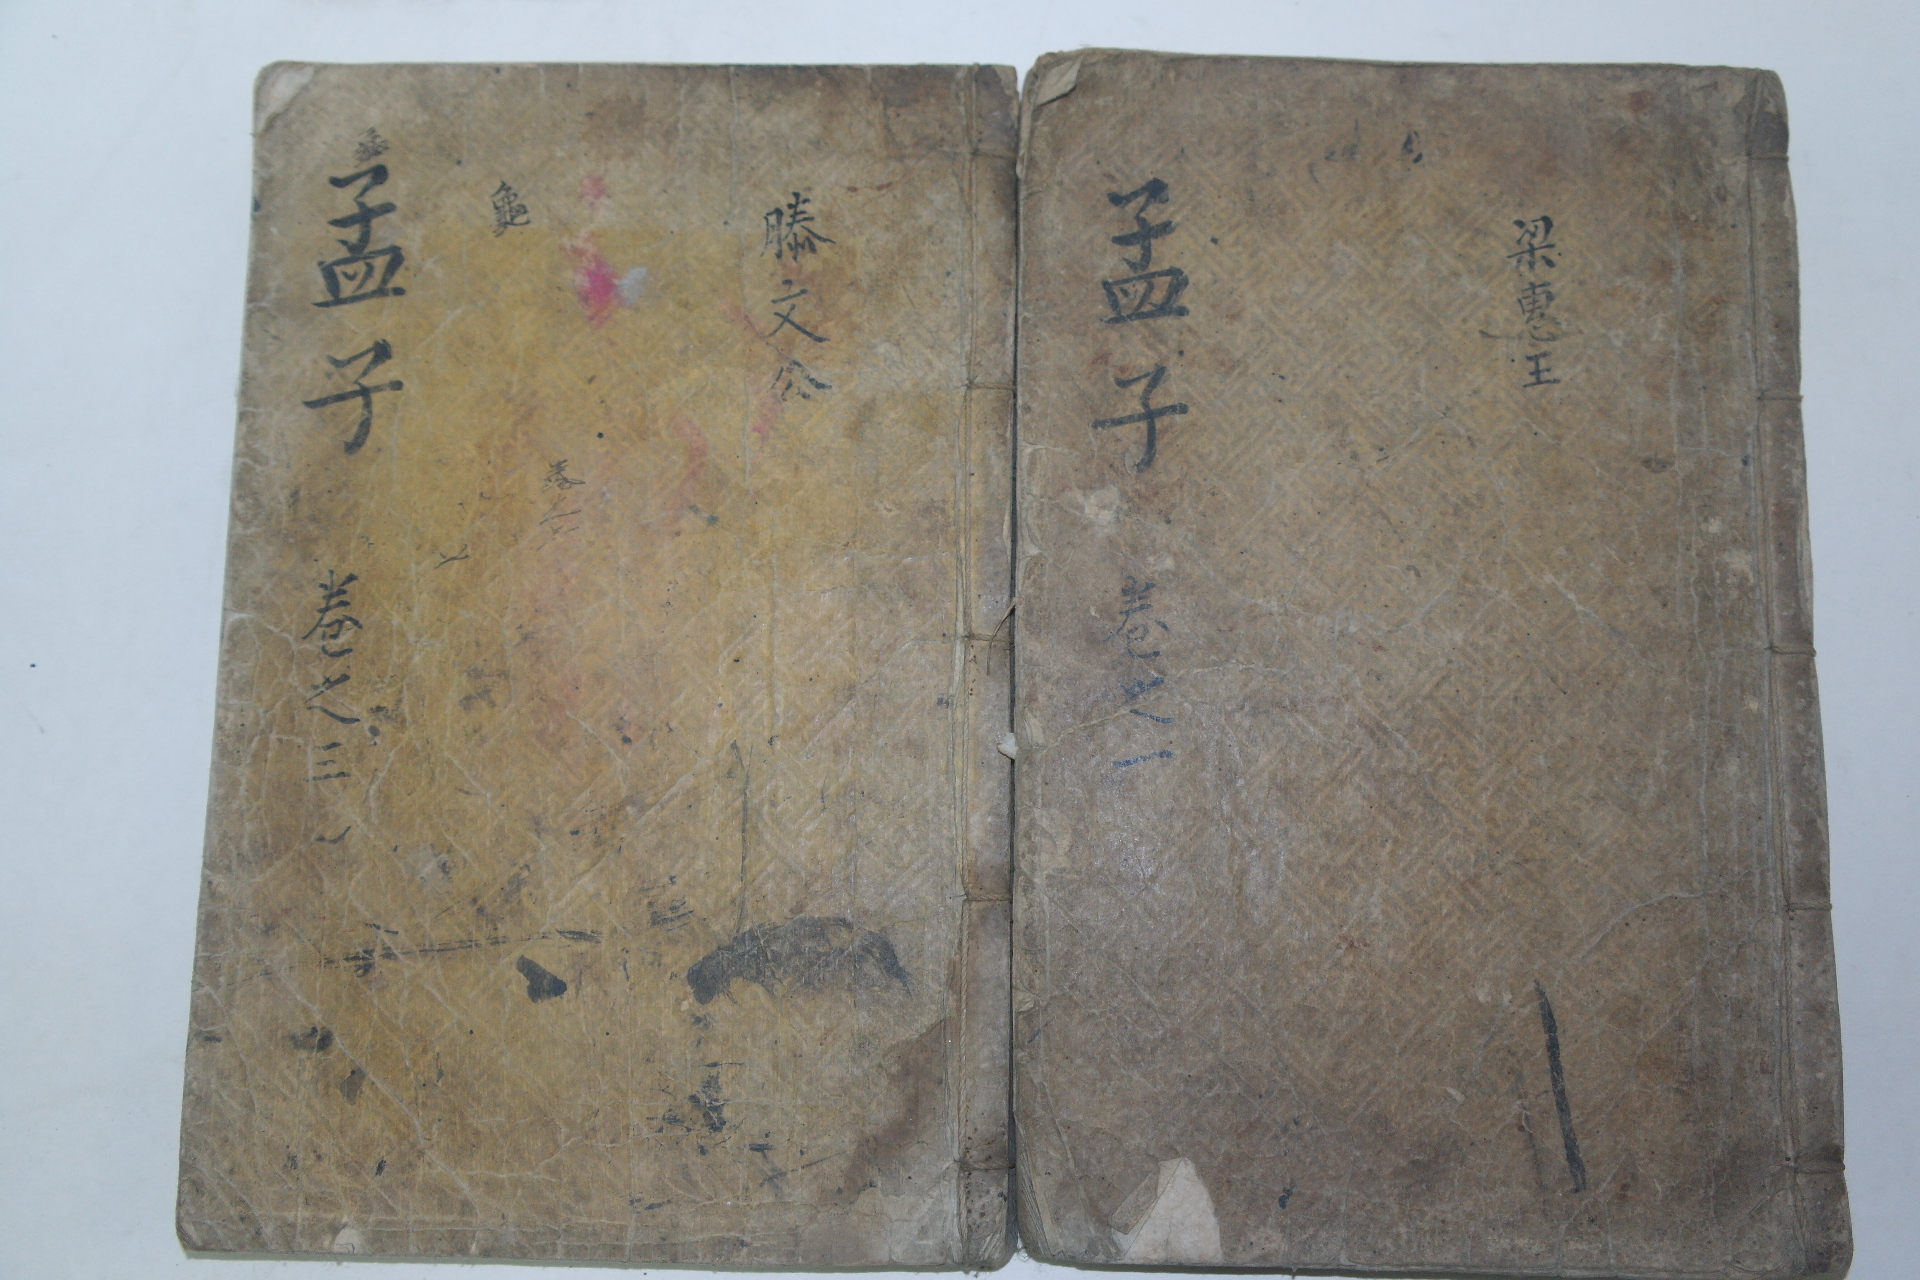 梁惠王
孟子
卷之一
滕文公
龜
卷
孟子
卷之三